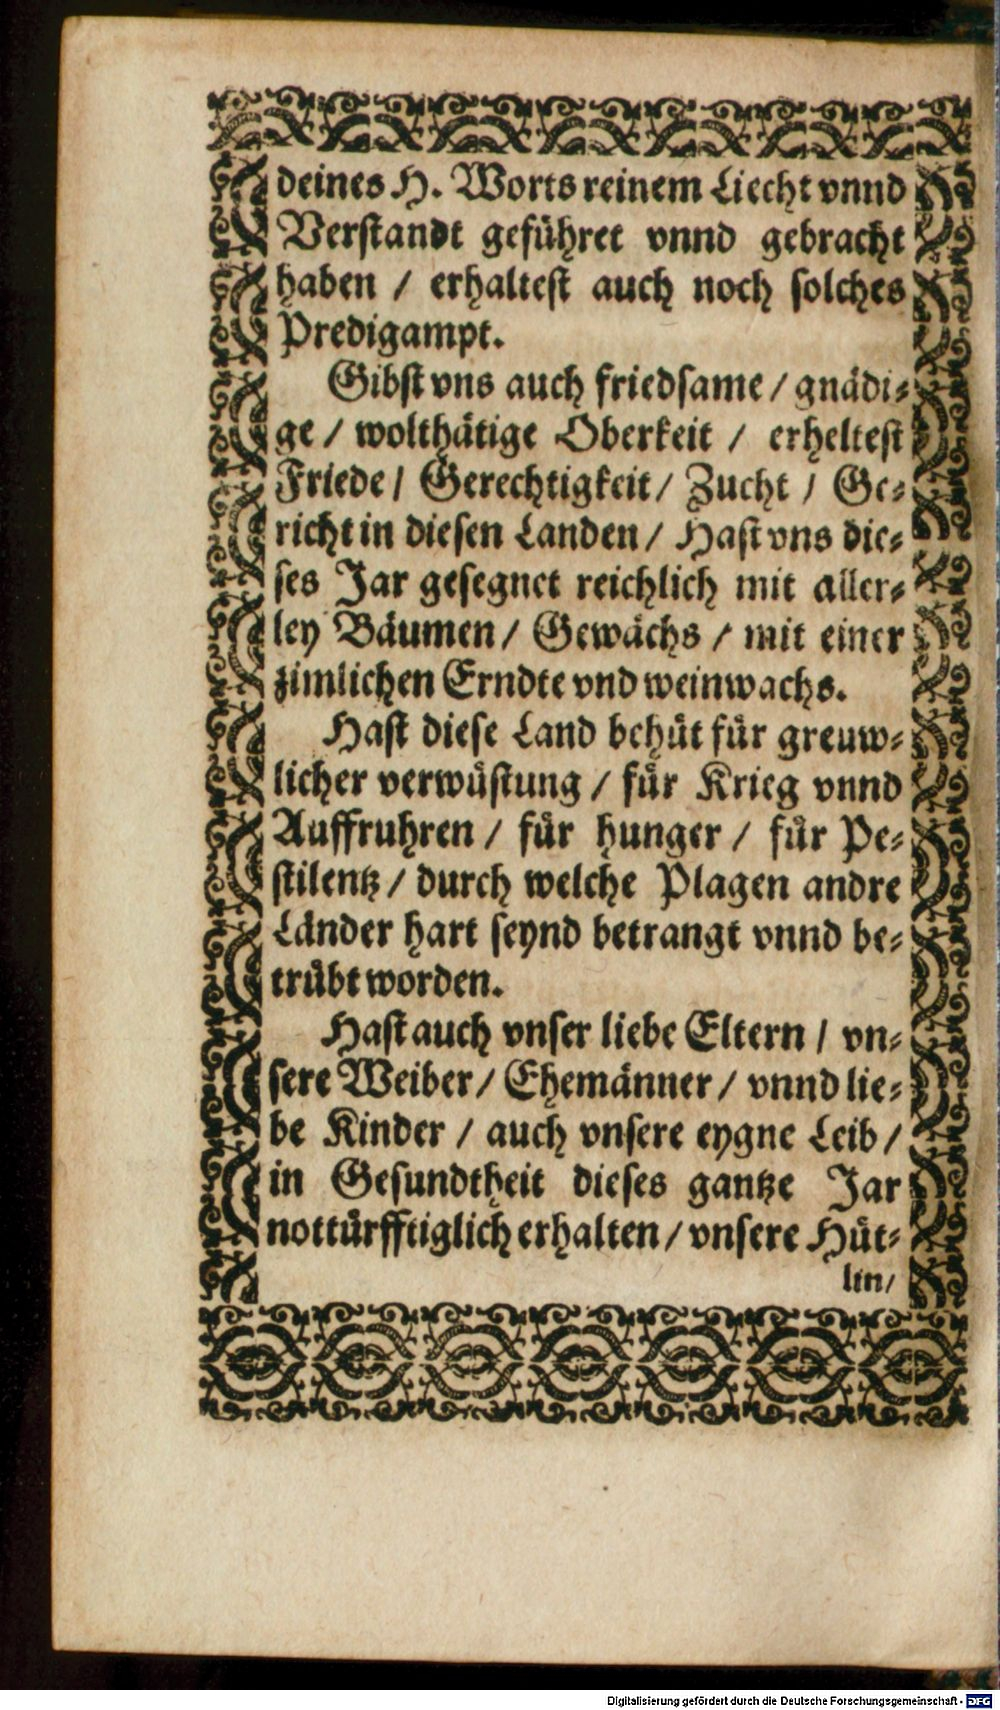 deines H. Worts reinem Liecht vnnd
Verstandt geführet vnnd gebracht
haben / erhaltest auch noch solches
Predigampt.
Gibst vns auch friedsame / gnädi-
ge / wolthätige Oberkeit / erheltest
Friede / Gerechtigkeit / Zucht / Ge-
richt in diesen Landen / Hast vns die-
ses Jar gesegnet reichlich mit aller-
ley Bäumen / Gewächs / mit einer
zimlichen Erndte vnd weinwachs.
Hast diese Land behüt für greuw-
licher verwüstung / für Krieg vnnd
Auffruhren / für hunger / für Pe-
stilentz / durch welche Plagen andre
Länder hart seynd betrangt vnnd be-
trübt worden.
Hast auch vnser liebe Eltern / vn-
sere Weiber / Ehemänner / vnnd lie-
be Kinder / auch vnsere eygne Leib /
in Gesundtheit dieses gantze Jar
nottürfftiglich erhalten / vnsere Hüt-
lin /
Digitalisierung gefördert durch die Deutsche Forschungsgemeinschaft - DFG